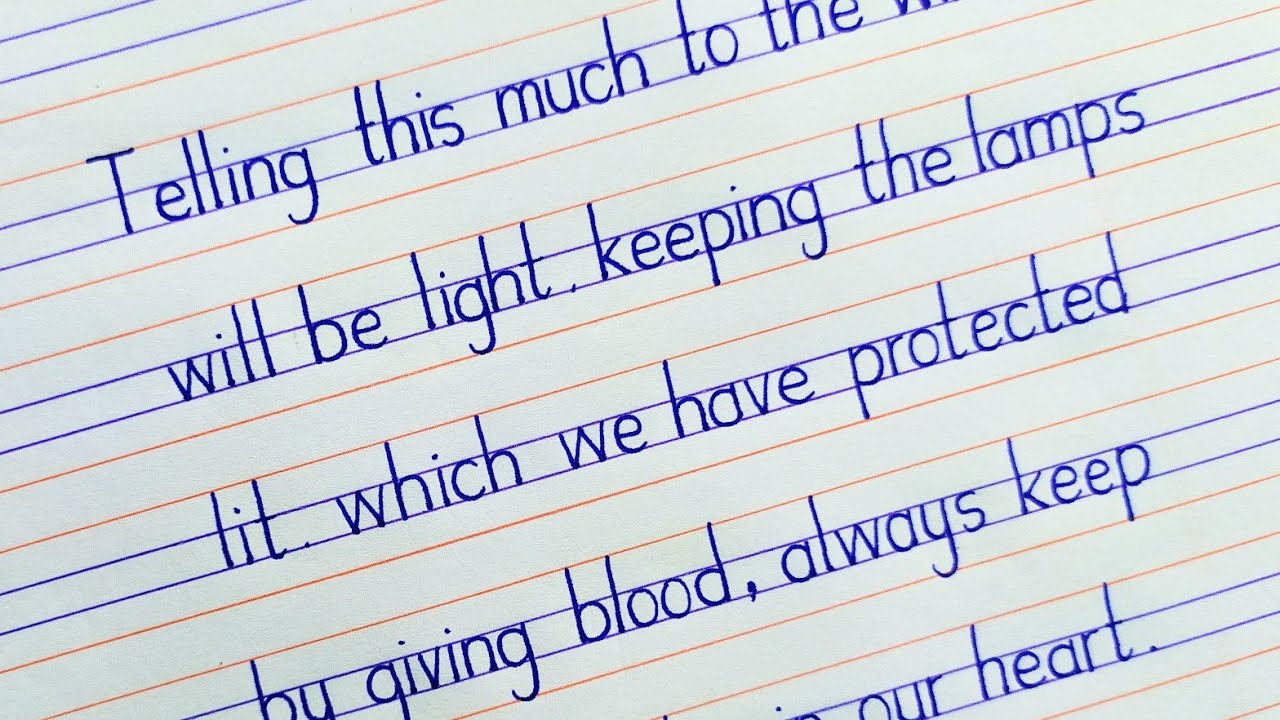 Telling this much to the
will be light. keeping the lamps
lit. which we have protected
by giving blood, always keep
in our heart.